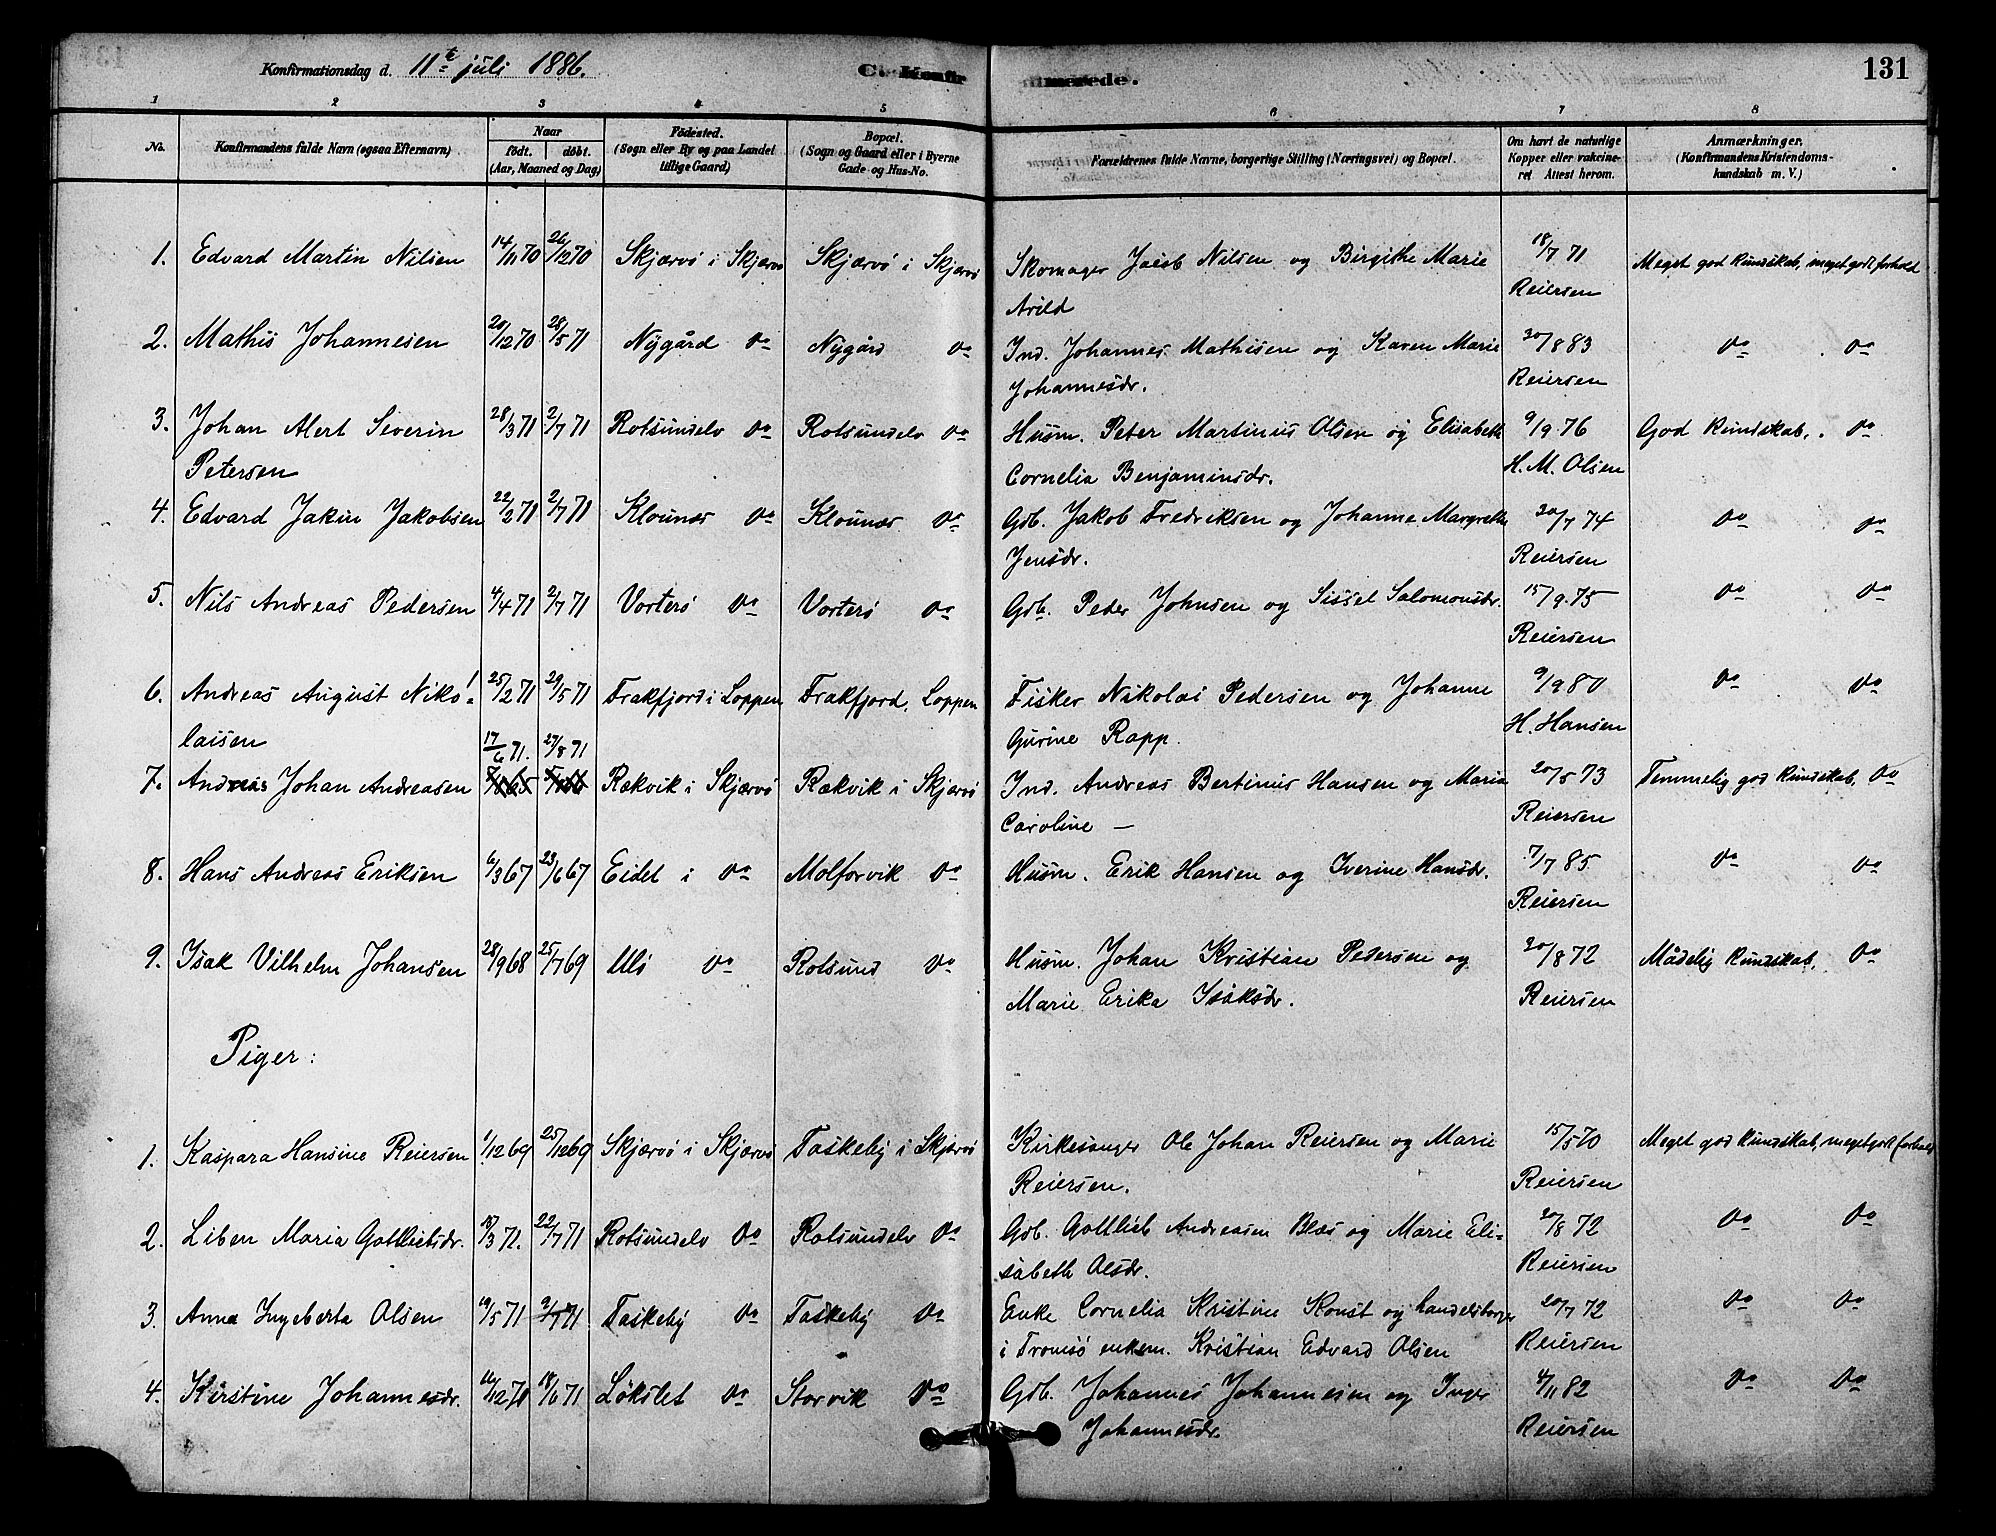 Konfirmationsdag d. 11te juli 1886.
C. Konfirmerede.
131
1 2 3 4 5 6 7 8
No.
Konfirmandens fulde Navn (ogsaa Efternavn)
Naar
födt. döbt.
(Aar, Maaned og Dag)
Födested.
(Sogn eller By og paa Landet
tillige Gaard)
Bopæl.
(Sogn og Gaard eller i Byerne
Gade og Hus-No.
Forældrenes fulde Navne, borgerlige Stilling (Næringsvei) og Bopæl.
Om havt de naturlige
Kopper eller vakcine-
ret Attest herom.
Anmærkninger.
(Konfirmandens Kristendoms-
kundskab m. V.)
1. Edvard Martin Nilsen 14/11 70 26/12 70 Skjærvö i Skjærvö Skjærvö i Skjærvö Skomager Jacob Nilsen og Birgithe Marie 18/7 71 Meget god kundskab, meget godt forhold
Arild Reiersen
2. Mathis Johannesen 20/12 70 28/5 71 Nygård do Nygård do Ind. Johannes Mathisen og Karen Marie 30/8 83 do do
Johannesdr. Reiersen
3. Johan Alert Severin 28/3 71 2/7 71 Rotsundelv do Rotsundelv do Husm. Peter Martinus Olsen og Elisabeth 9/9 76 God kundskab, do
Petersen Cornelia Benjaminsdr. H. M. Olsen
4. Edvard Jakin Jakobsen 22/2 71 2/7 71 Klounæs do Klounæs do Gdb. Jakob Fredriksen og Johanne Margrethe 20/7 74 do do
Jensdr. Reiersen
5. Nils Andreas Pedersen 4/4 71 2/7 71 Vorterö do Vorterö do Gdb. Peder Johnsen og Sissel Salomonsdr. 15/9 75 do do
Reiersen
6. Andreas August Niko- 25/2 71 29/5 71 Frakfjord i Loppen Frakfjord, Loppen Fisker Nikolai Pedersen og Johanne 9/9 80 do do
laisen Gurine Rapp. H. Hansen
17/6 71. 27/8 71
7. Andreas Johan Andreasen Rækvik i Skjærvö Rækvik i Skjærvö Ind. Andreas Bertinus Hansen og Maria 20/5 73 Temmelig god kundskab, do
Caroline — Reiersen
8. Hans Andreas Eriksen 6/3 67 23/6 67 Eidet i do Molforvik do Husm. Erik Hansen og Iverine Hansdr. 7/7 85 do do
Reiersen
9. Isak Vilhelm Johansen 28/9 68 25/7 69 Ulö do Rotsund do Husm. Johan Kristian Pedersen og 20/8 72 Mådelig kundskab, do
Marie Erika Isaksdr. Reiersen
Piger:
1. Kaspara Hansine Reiersen 1/12 69 25/12 69 Skjærvö i Skjærvö Taskeby i Skjærvö Kirkesanger Ole Johan Reiersen og Marie 15/5 70 Meget god kundskab, meget godt forhold
Reiersen. Reiersen
2. Liben Maria Gottliebsdr. 18/3 71. 22/7 71 Rotsundelv do Rotsundelv do Gdb. Gottlieb Andreasen Blæs og Marie Eli- 20/8 72 do do
sabeth Olsdr. Reiersen
3. Anna Ingeberta Olsen 19/5 71 2/7 71 Taskeby do Taskeby do Enke Cornelia Kristine Konst og handelsborger 20/7 72 do do
i Tromsö enkem. Kristian Edvard Olsen Reiersen
4. Kirstine Johannesdr. 16/12 70 18/6 71 Lökslet do Storvik do Gdb. Johannes Johannesen og Inger 4/11 82 do do
Johannesdr. Reiersen